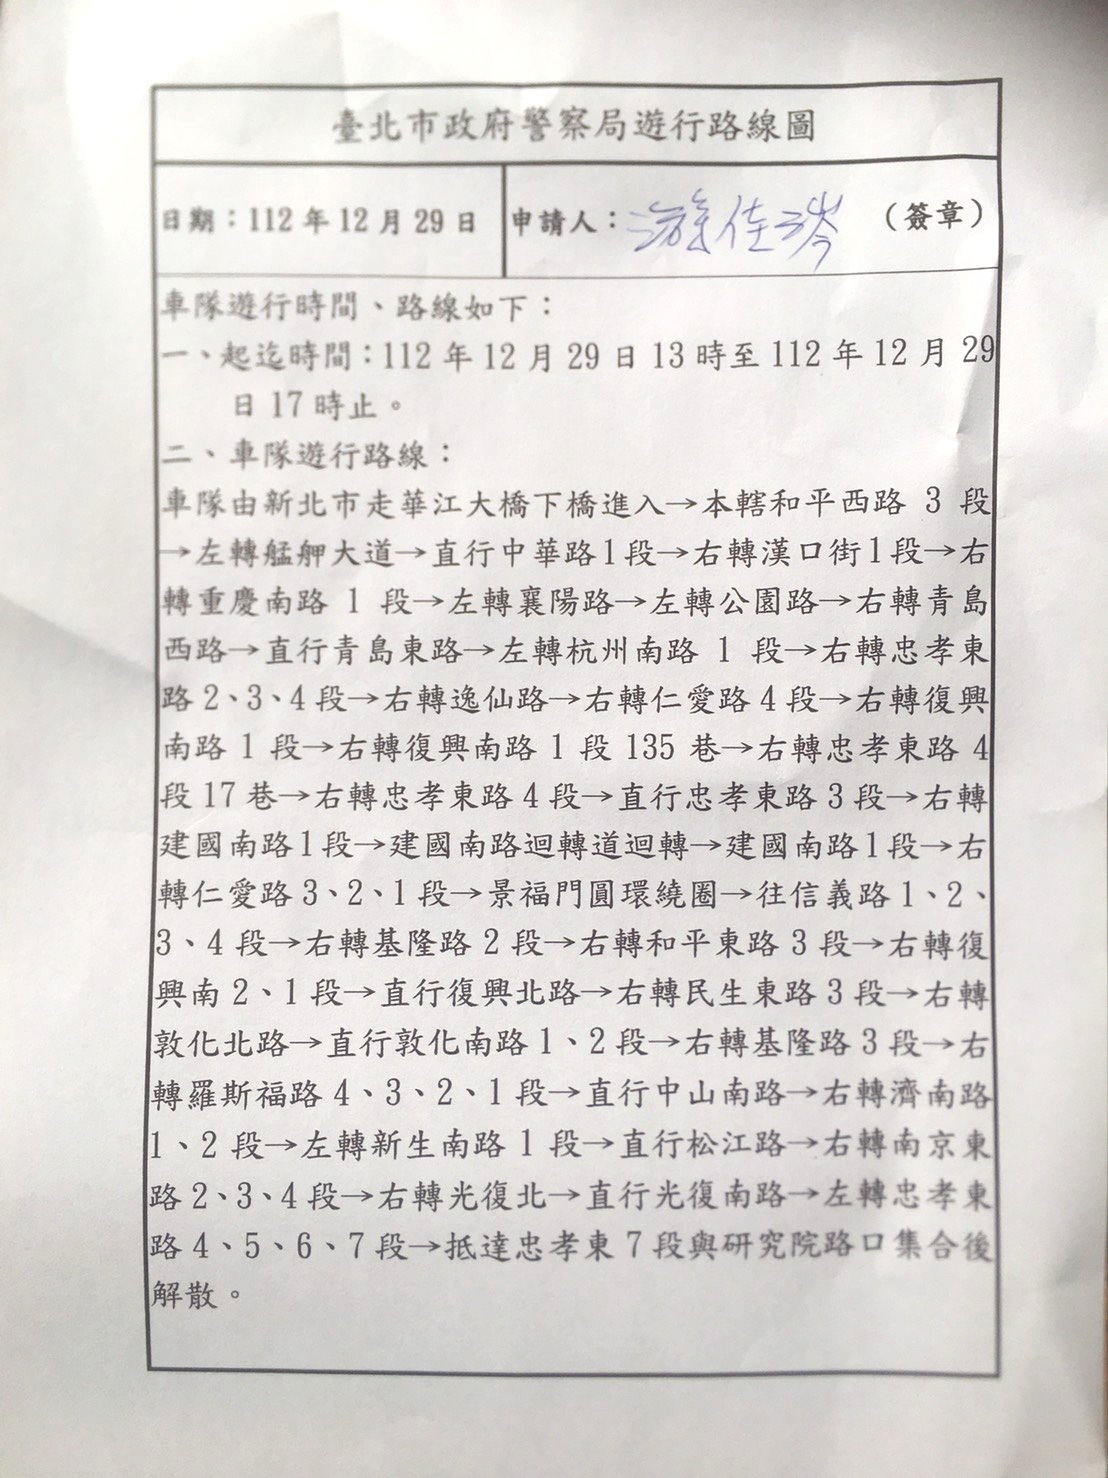 臺北市政府警察局遊行路線圖
日期：112 年 12 月 29 日
申請人：游佳 （簽章）
車隊遊行時間、路線如下：
一、起迄時間：112 年 12 月 29 日 13 時至 112 年 12 月 29
日 17 時止。
二、車隊遊行路線：
車隊由新北市走華江大橋下橋進入→本轄和平西路 3 段
→左轉艋舺大道→直行中華路1段→右轉漢口街1段→右
轉重慶南路 1 段→左轉襄陽路→左轉公園路→右轉青島
西路→直行青島東路→左轉杭州南路 1 段→右轉忠孝東
路 2、3、4 段→右轉逸仙路→右轉仁愛路 4 段→右轉復興
南路 1 段→右轉復興南路 1 段 135 巷→右轉忠孝東路 4
段 17 巷→右轉忠孝東路 4 段→直行忠孝東路 3 段→右轉
建國南路1段→建國南路迴轉道迴轉→建國南路1段→右
轉仁愛路 3、2、1 段→景福門圓環繞圈→往信義路 1、2、
3、4 段→右轉基隆路 2 段→右轉和平東路 3 段→右轉復
興南 2、1 段→直行復興北路→右轉民生東路 3 段→右轉
敦化北路→直行敦化南路 1、2 段→右轉基隆路 3 段→右
轉羅斯福路 4、3、2、1 段→直行中山南路→右轉濟南路
1、2 段→左轉新生南路 1 段→直行松江路→右轉南京東
路 2、3、4 段→右轉光復北→直行光復南路→左轉忠孝東
路 4、5、6、7 段→抵達忠孝東 7 段與研究院路口集合後
解散。